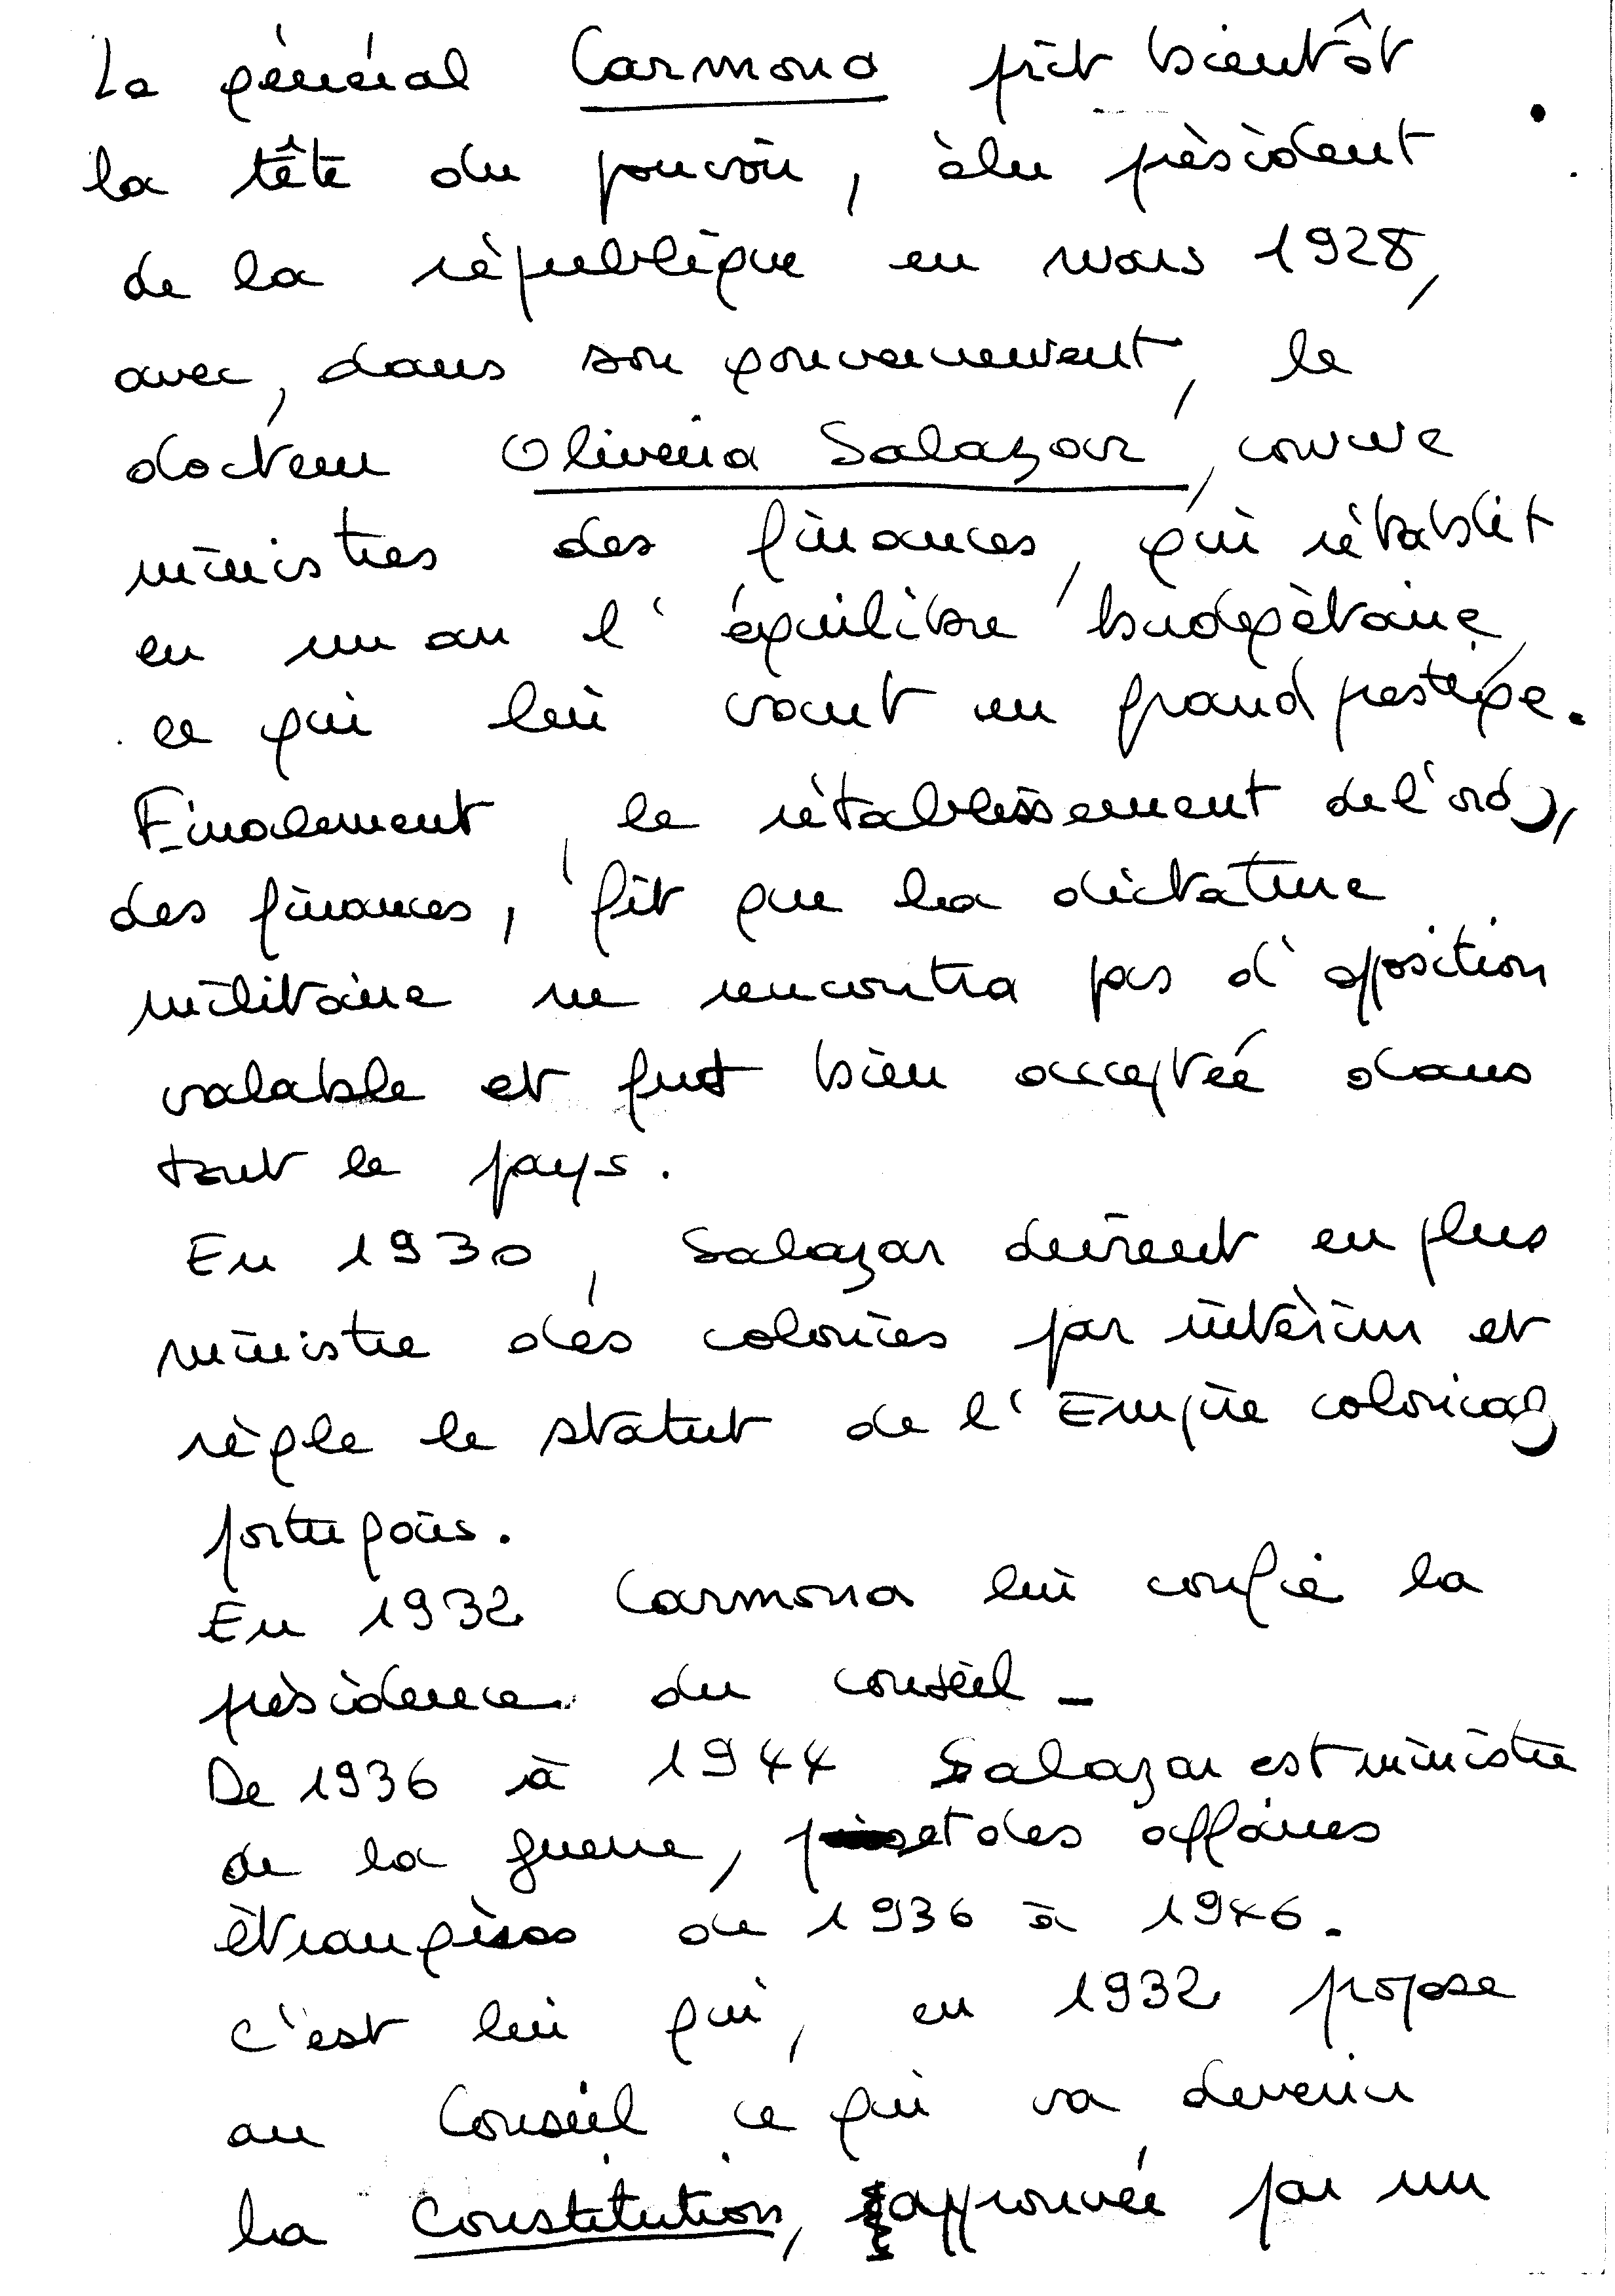 Le général Carmona prit bientôt
la tête du pouvoir, élu président
de la république en mars 1928,
avec, dans son gouvernement, le
docteur Oliveira Salazar, comme
ministres des finances, qui rétablit
en un an l'équilibre budgétaire,
ce qui lui vaut un grand prestige.
Finalement, le rétablissement de l'ordre,
des finances, fit que la dictature
militaire ne rencontra pas d'opposition
valable et fut bien acceptée dans
tout le pays.
En 1930, Salazar devient en plus
ministre des colonies par intérim et
règle le statut de l'Empire colonial
portugais.
En 1932 Carmona lui confie la
présidence du conseil-
De 1936 à 1944 Salazar est ministre
de la guerre, et des affaires
étrangères de 1936 à 1946.
C'est lui qui, en 1932 propose
au Conseil ce qui va devenir
la Constitution, approuvée par un